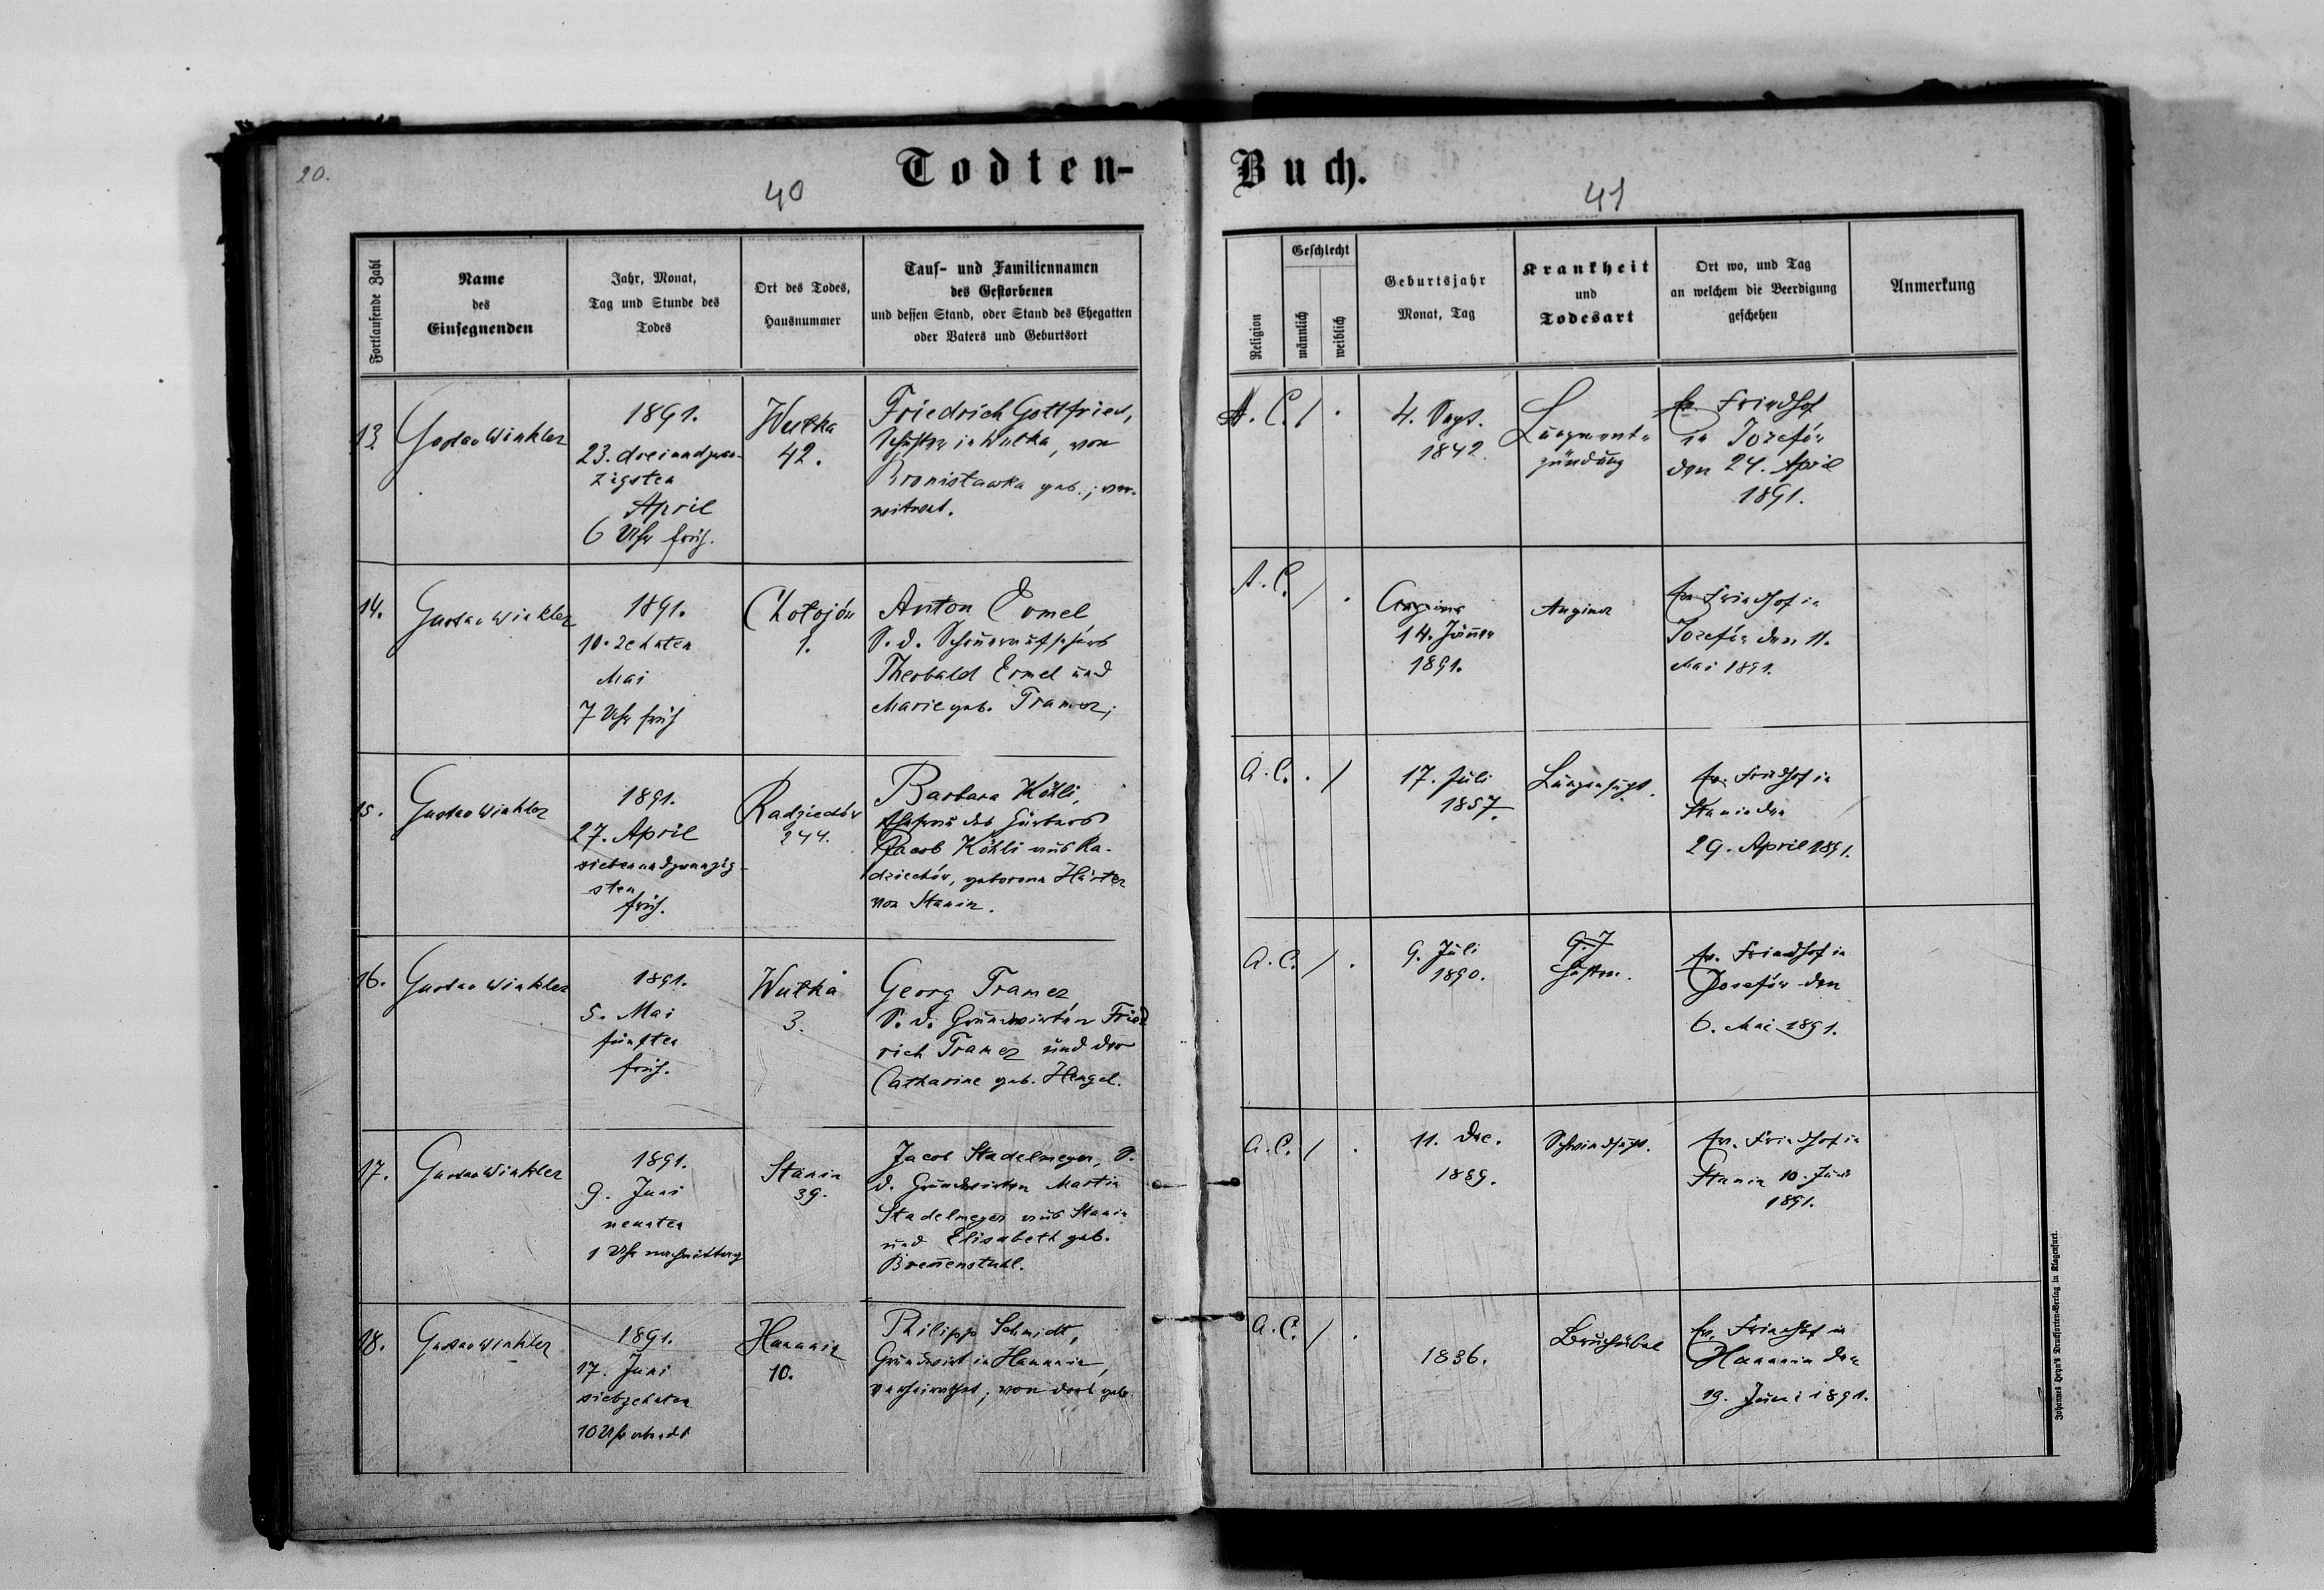 20.
40
Todten-
Fortlaufende Zahl
Name
des
Einsegnenden
Jahr, Monat,
Tag und Stunde des
Todes
Ort des Todes,
Hausnummer
Tauf- und Familiennamen
des Gestorbenen
und dessen Stand, oder Stand des Ehegatten
oder Vaters und Geburtsort
13.
Gustav Winkler
1891.
23. dreiundzwan-
zigsten
April
6 Uhr früh.
Wutka
42.
Friedrich Gottfried,
in Wutka, von
Bronisławka geb.; ver-
witwet.
14.
Gustav Winkler
1891.
10. zehnten
Mai
7 Uhr früh
Chołojów
1.
Anton Ermel
S. d.
Theobald Ermel und
Marie geb. Tramer;
15.
Gustav Winkler
1891.
27. April
siebenundzwanzig-
sten
früh.
Radziechów
244.
Barbara Köhli,
Ehefrau des Färbers
Jacob Köhli aus Ra-
dziechów, geborene Härter
von Stanin.
16.
Gustav Winkler
1891.
5. Mai
fünften
früh.
Wutka
3.
Georg Tramer,
S. d. Grundwirten Fried
rich Tramer und der
Catharine geb. Hengel.
17.
Gustav Winkler
1891.
9. Juni
neunten
1 Uhr nachmittag
Stanin
39.
Jacob Stadelmeyer, S.
d. Grundwirten Martin
Stadelmeyer aus Stanin
und Elisabeth geb.
Breñenstuhl.
18.
Gustav Winkler
1891.
17. Juni
siebzehnten
10 Uhr abends
Hanunin
10.
Philipp Schmidt,
Grundwirt in Hanunin,
verheirathet; von dort geb.
Buch.
41
Religion
Geschlecht
männlich
weiblich
Geburtsjahr
Monat, Tag
Krankheit
und
Todesart
Ort wo, und Tag
an welchem die Beerdigung
geschehen
Anmerkung
A. C. / .
4. Sept.
1842.
Lungenent-
zündung
Ev. Friedhof
in Józefów
den 24. April
1891.
A. C. / .
14. Jänner
1891.
Angina
Ev. Friedhof in
Józefów den 11.
Mai 1891.
A. C. . /
17. Juli
1857.
Lungensucht.
Ev. Friedhof in
Stanin den
29. April 1891.
A. C. / .
9. Juli
1890.
Husten.
Ev. Friedhof in
Josefów den
6. Mai 1891.
A. C. / .
11. Dec.
1889.
Schwindsucht.
Ev. Friedhof in
Stanin 10. Juni
1891.
A. C. / .
1836.
Bruchübel
Ev. Friedhof in
Hanunin den
19. Juni 1891.
Johannes Heyn's Drucksorten-Verlag in Klagenfurt.